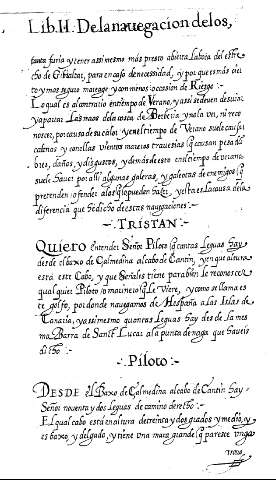 Lib. II. De la nauegacion de los,
tanta furia y tener assi mesmo más presto abierta la boca del estre
cho de Gibraltar, para en caso de necessidad, y por que es más cier
to y mas seguro marear y con menos occasion de Riesgo :~
Lo qual es al contrario en tiempo de Verano, y assi se deuen desuiar
y apartar las naos de la costa de Berberia y no la ver, ni reco
noscer, por causa de su calor y en el tiempo de Verano suele causar
calmas y canellas vientos mareros trauesias q causan perdi
bres, daños, y disgustos, y demás de esto en el tiempo de verano
suele hauer por alli algunas galeras, y galeotas de enemigos q
pretenden ofender a los q lo pueden hazer, y esta es la causa de la
diferencia que he dicho de estas nauegaciones :~
·: TRISTAN :~
Quiero entender Señor Piloto q tantas leguas hay
desde el baxo de Calmedina al cabo de Cantin, y en que altura
está este Cabo, y que Señales tiene para bien le reconoscer
qualquier Piloto o marinero q le Viere, y como se llama es
te golfo, por donde nauegamos de Hespaña a las Islas de
Canaria, y assi mesmo quantas leguas hay desde la mes
ma Barra de Sant Lucar a la punta de naga que haueis
dicho :~
·: Piloto :~
DESDE el Baxo de Calmedina al cabo de Cantin hay
Señor nouenta y dos leguas de camino derecho :~
El qual cabo está en altura de treinta y dos grados y medio, y
es baxo, y delgado, y tiene Una mata grande q paresce Una